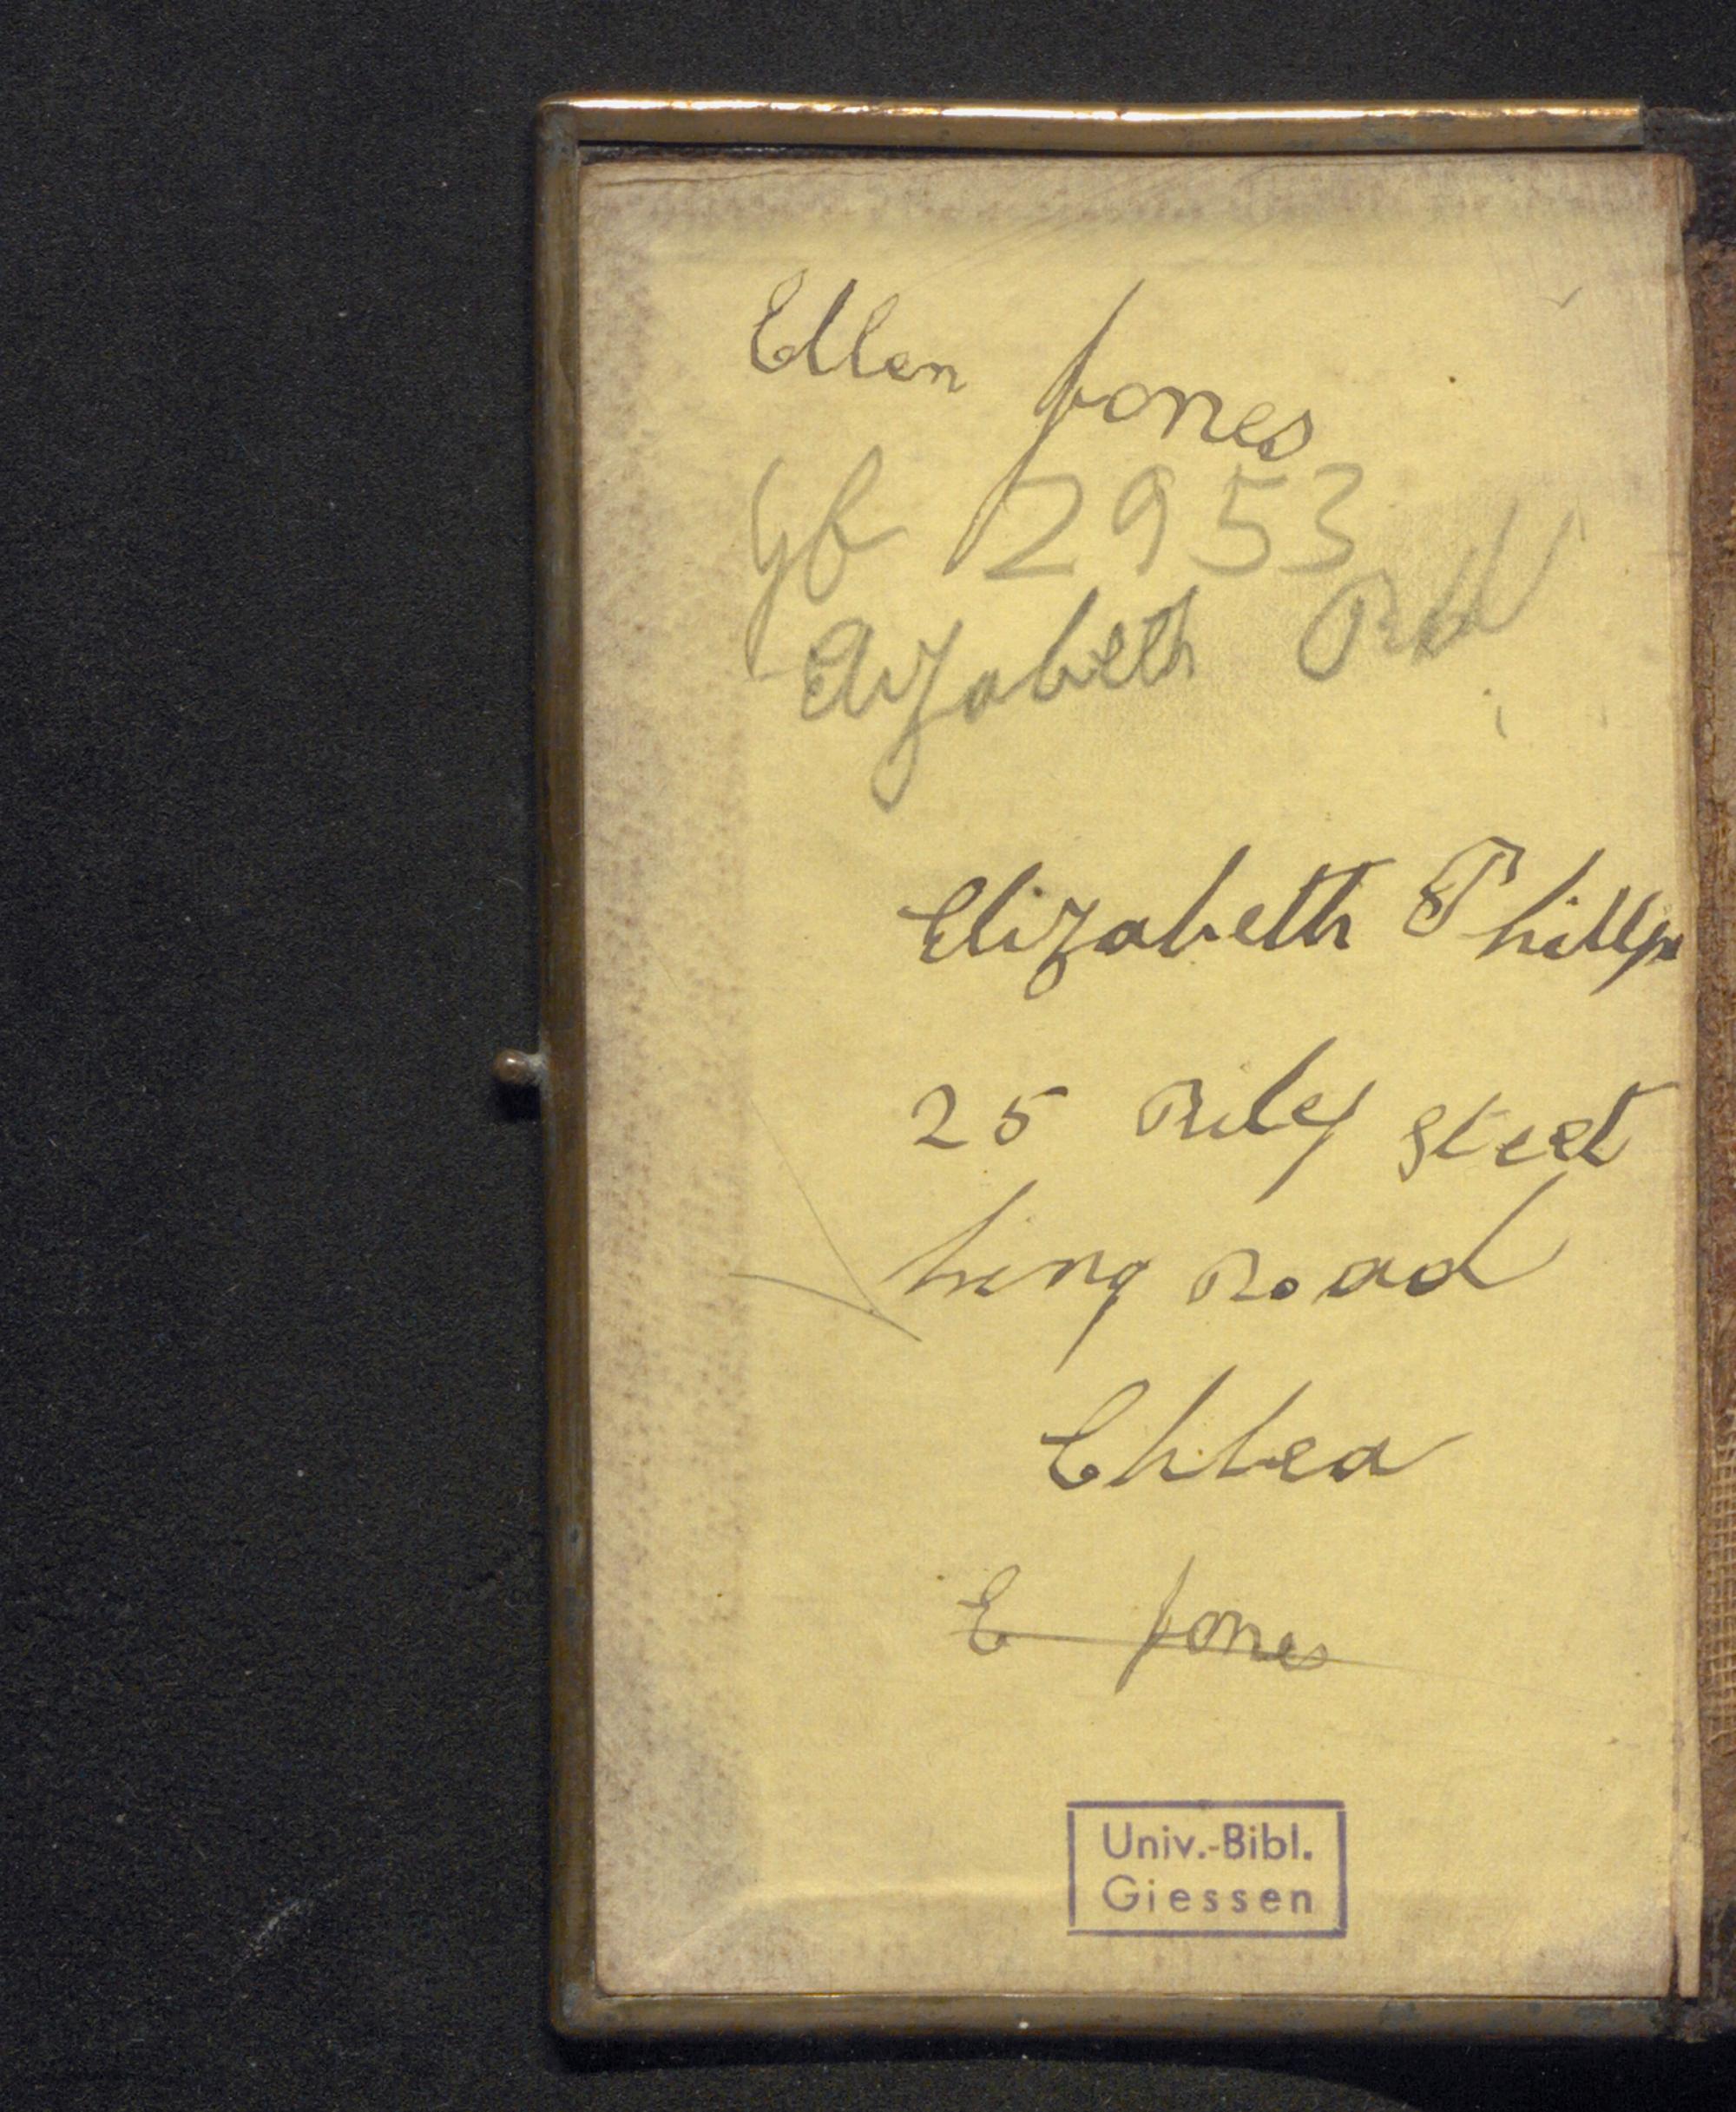 Ellen Jones
Gb 2953
Elizabeth
Elizabeth Phillps
25 Riley Street
King Road
Chlea
E Jones
Univ.-Bibl.
Giessen